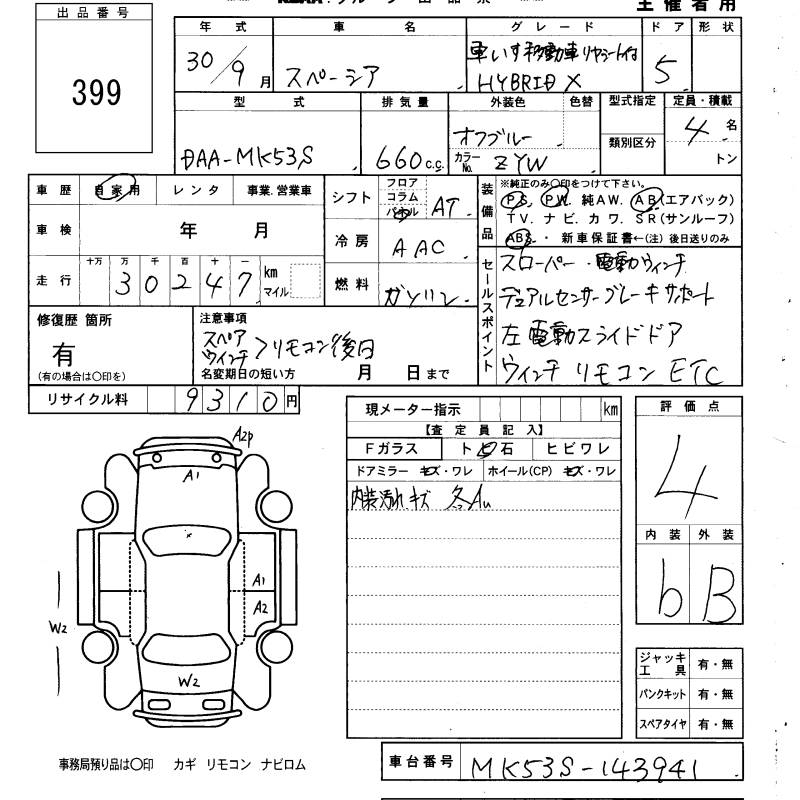 主催者用
出品番号
399
年式 車名 グレード ドア 形状
30/9月 スペーシア 車いす移動車リヤシート付 HYBRID X 5
型式 排気量 外装色 色替 型式指定 定員・積載
DAA-MK53S 660c.c. オフブルー 4名
カラーNo. ZYW 類別区分 トン
車歴 自家用 レンタ 事業.営業車
車検 年 月
走行 十万 万 千 百 十 一
30247 km マイル
シフト フロア コラム パネル AT
冷房 AAC
燃料 ガソリン
装備品 ※純正のみ〇印をつけて下さい。
PS. PW. 純AW. AB(エアバック)
TV. ナビ. カワ. SR(サンルーフ)
ABS. 新車保証書←(注)後日送りのみ
セールスポイント
スローパー・電動ウィンチ
デュアルセンサーブレーキサポート
左電動スライドドア
ウィンチリモコン ETC
修復歴 箇所
有
(有の場合は〇印を)
注意事項
スペア ウィンチ >リモコン後日
名変期日の短い方 月 日まで
リサイクル料 9310円
現メーター指示 km
【査定員記入】
Fガラス ト ビ 石 ヒビワレ
ドアミラー キズ・ワレ ホイール(CP) キズ・ワレ
内装汚れ.キズ 各Au
評価点
4
内装 外装
b B
ジャッキ工具 有・無
パンクキット 有・無
スペアタイヤ 有・無
A2p
A1
A1
A2
W2
W2
事務局預り品は〇印 カギ リモコン ナビロム
車台番号 MK53S-143941